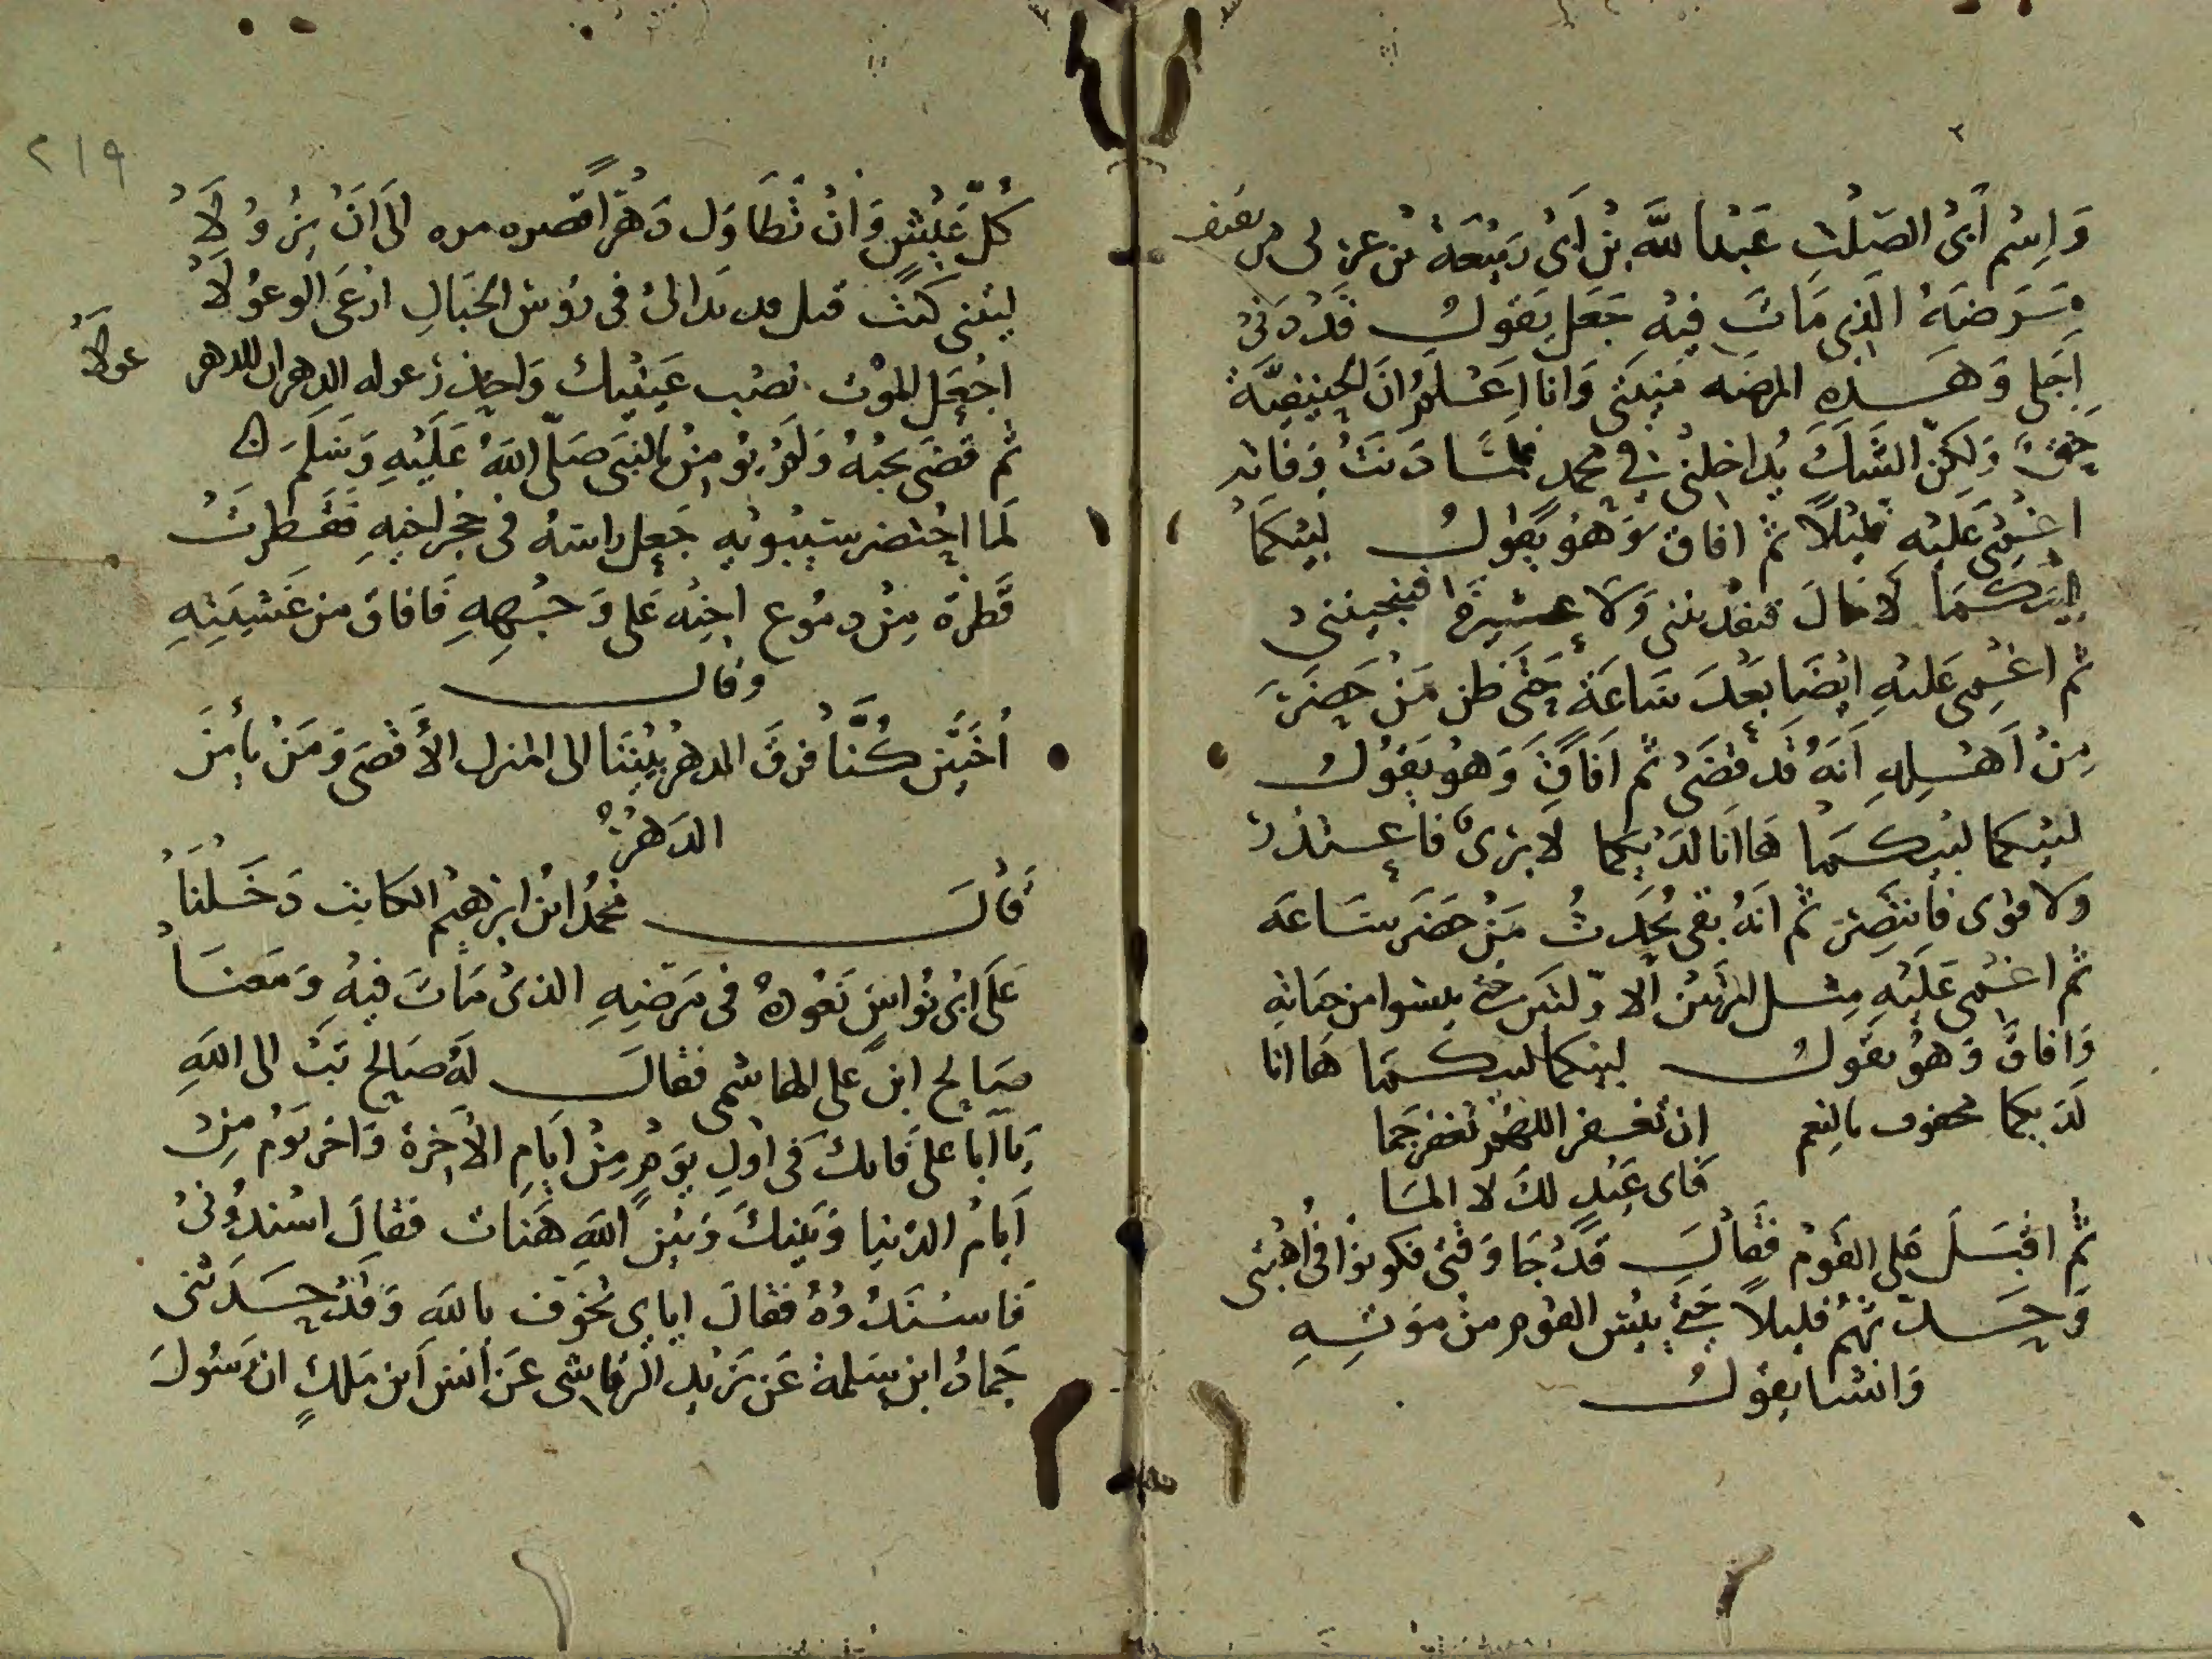 وَاِسْم أبى الصَلْتِ عَبْدا للَّه بْن اَبى رَبيْعَة بْن عن لى من ثقيف
مَرَضَهُ الَّذِى مَاتَ فِيْهِ جَعَل يَقول قَدْ دَنىْ
اَجَلى وَهَذِهِ المرضَه مَنِيتى وَانا اعْلَمُ انَ الحِنيفيَّة
حَقٌّ وَلكنّ الشَكَ يُدَاخلنى فى محمد فلمّا دَنَتْ وَفاته
اغْمِىَ عَلَيْه قليْلاً ثم افاق وَهُوَ يَقُول لبيْكمَا
لبيْكمَا لا مَال فيفدينى وَلا عشيرة فينجينى
ثم اغْمِى عَليْهِ ايْضَا بَعْدَ سَاعَة حَتّى ظن مَنْ حَضَرَ
مِنْ اَهْلِهِ اَنَهُ قَدْ قضَىْ ثم افَاقَ وَهُو يَقوُل
لبيْكما لبيْكمَا هَا انا لدَيْكما لا برىٌ فاعتذر
وَلا قوى فانتَصِرَ ثم انهُ بقى يُحَدِثُ مَنْ حَضَرَ سَاعَه
ثم اغْمِى عَلَيْهِ مِثل المرّتيْن الاوّلتيْن حتى يئسوا من حَيَاتهِ
وَافاقَ وَهُوَ يقَول لبيْكما لبيْكمَا هَا انا
لَدَيكما محفوف بالنِعم ان تغفر اللهمّ تغفر جَما
فاى عَبْدٍ لك لا المّا
ثمَّ اقْبَلَ عَلى القوْم فقَال قدْ جَا وَقتى فكونوْا فى اُهْبتى
وَحَدّثهُمْ قليلاً حَتّى يئِس القوم من مَوْتِهِ
وَانشا يقوُل
كُلّ عَيْشٍ وَانْ تَطَاوَل دَهْراً قصره مره الى اَنْ يَزُوْلاَ
ليْتنى كنْت قبل مَا قد بَدا لىْ فى رؤس الجبَالِ ارْعَى الوعُوْلاَ
اجْعَل الموْت نصْب عَيْنيك وَاحْذر غوله الدهر ان للدهر غولاَ
ثم قضَى نحبْهُ وَلَمْ يؤمِنْ بالنبى صَلّى اللَهُ عَلَيْهِ وَسَلَمَ
لَما احْتضر سيْبوَيْهِ جَعل راسَهُ فى حجْر اخيهِ فَقَطرتْ
قَطرَة مِنْ دمُوع اخِيْه عَلى وَجْهِهِ فَافاق من غَشيَتِهِ
وقال
اُخَيَّيْن كُنَّا فرقَ الدهرُ بيْننَا الى المنزل الأَقْصَى وَمَنْ يأمن
الدَهْرَا
قَاْلَ محمدُ ابن ابرَهيْم الكاتِب دَخَلْنَا
عَلَى ابْى نُوَاس نَعُوْدهُ فى مَرَضِهِ الذىْ مَاتَ فيْهِ وَمَعنَا
صَالح ابن على الهاشمى فقالَ لهُ صَالح تبْ الى اللَهِ
يا اَبا على فانك فى اول يَوْمٍ مِنْ ايَامِ الاخِرَة وَاخر يَوْم مِنْ
اَيامْ الدُنيا وَبَيْنكَ وَبَيْن اللَهِ هَنات فقالَ اسْندُوْنىْ
فاسْنَدُوهُ فقَالَ ايَاىَ تُخوّف باللَه وَقَدْ حَدَثنى
حَمادُ ابن سَلَمَة عَن يَزيد الرقاشى عَن اَنس اَبن مَلكٍ ان رَسُولَ
غولاَ
٢١٩